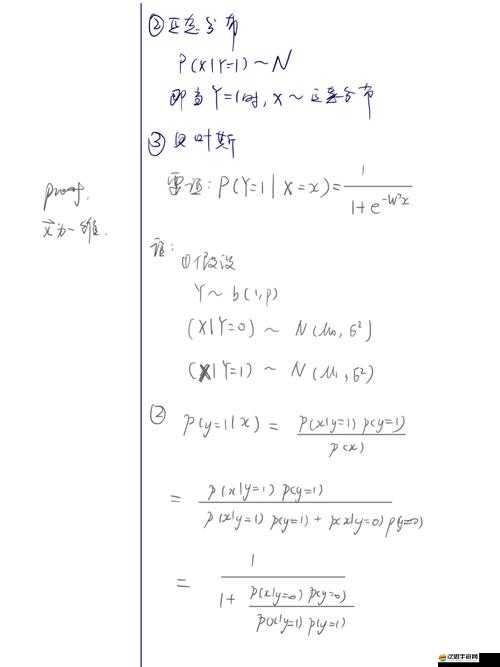 ②正态分布
P(X|Y=1)~N
即当Y=1时,X~正态分布
③贝叶斯
需证: P(Y=1|X=x)= 1 / (1+e^{-w^T x})
proof.
x⃗为一维.
证:
①假设
Y~b(1,p)
(X|Y=0) ~ N(μ₀,σ²)
(X|Y=1) ~ N(μ₁,σ²)
② p(y=1|x) = p(x|y=1) p(y=1) / p(x)
= p(x|y=1) p(y=1) / (p(x|y=1) p(y=1) + p(x|y=0) p(y=0))
= 1 / (1+ p(x|y=0) p(y=0) / (p(x|y=1) p(y=1)))